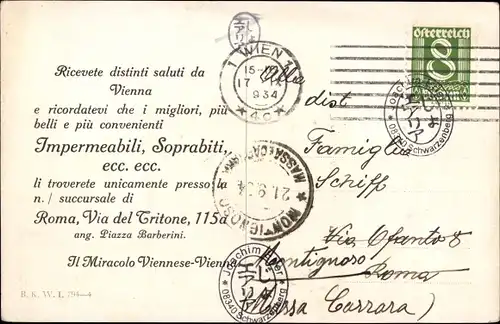 Ricevete distinti saluti da
Vienna
e ricordatevi che i migliori, più
belli e più convenienti
Impermeabili, Soprabiti,
ecc. ecc.
li troverete unicamente presso la
n./ succursale di
Roma, Via del Tritone, 115a
ang. Piazza Barberini.
Il Miracolo Viennese-Vienna
B. K. W. I. 794—4
1 WIEN 1
15-
17
934
* 4c *
österreich
8
Alla
dist
Famiglia
Schiff
Via Ofanto 8
Montignoso
Roma
(Massa Carrara)
MONTIGNOSO
MASSA E CARRARA
21.9.34
Joachim
* 08340 Schwarzenberg *
Joachim
* 08340 Schwarzenberg *